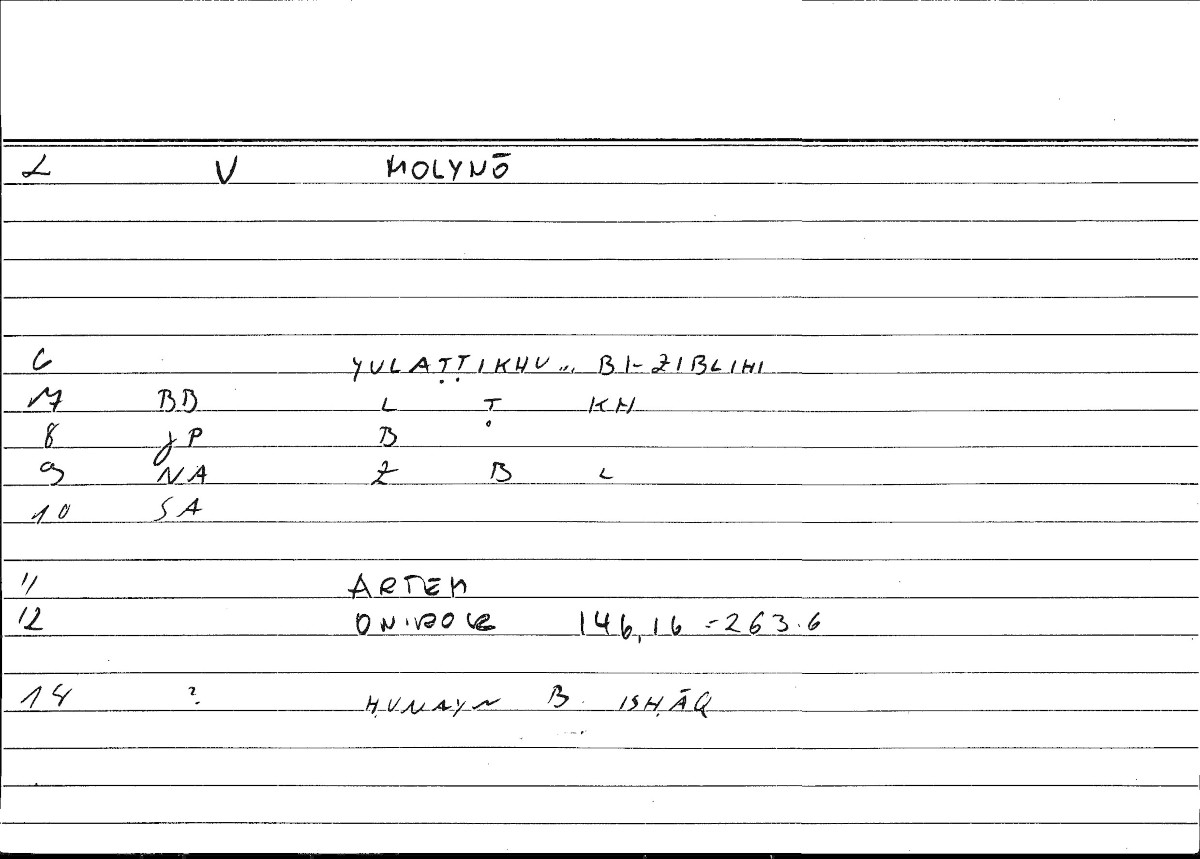 L V MOLYNŌ
6 YULAṬṬIKHU... BI-ZIBLIHI
7 BB L Ṭ KH
8 JP B
9 NA Z B L
10 SA
11 ARTEM
12 ONIROCR 146,16 = 263.6
14 ? ḤUNAYN B. ISḤĀQ